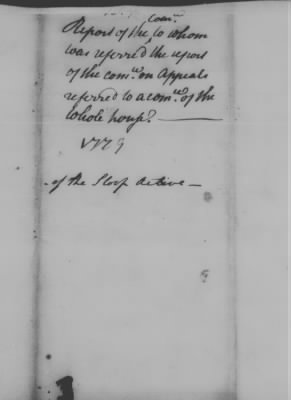 Report of the com.ee to whom
was referred the report
of the com.ee on Appeals
referred to a com.ee of the
whole house. —
1779
- of the Sloop Active —